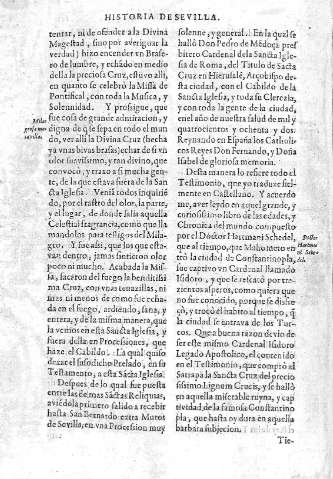 HISTORIA DE SEVILLA.
tentar, ni de ofender a la Divina
Magestad, sino por averiguar la
verdad; hizo encender un Brase-
ro de lumbre, y echãdo en medio
della la preciosa Cruz, estuvo alli,
en quanto se celebrò la Missa de
Pontifical, con toda la Musica, y
Solennidad. Y prosigue, que
fue cosa de grande admiracion, y
digna de que sepa en todo el mun
do, ver alli la Divina Cruz (hecha
ya vnas bivas brasas) echar de si vn
olor suavissimo, y tan divino, que
convocò, y traxo a si mucha gen-
te, de la que estava fuera de la San
cta Iglesia. Venià todos inquiriẽ
do, por el rastro del olor, la parte,
y el lugar, de donde salia aquella
Celestial fragrancia, como que lla
mandolos para testigos del Mila-
gro. Y fue assi, que los que esta-
van dentro, jamas sintieron olor
poco ni mucho. Acabada la Mis-
sa, sacaron del fuego la benditissi
ma Cruz, con vnas tenazillas, ni
mas ni menos de como fue echa-
da en el fuego, ardiendo, sana, y
entera, y de la misma manera, que
la vemos en esta Sancta Iglesia, y
fuera della en Processiones, que
haze el Cabildo. La qual quiso
dexar el susodicho Prelado, en su
Testamento, a esta Sãcta Iglesia.
Despues de lo qual fue puesta
entre las demas Sãctas Reliquias,
aviẽdola primero salido a recebir
hasta San Bernardo extra Muros
de Sevilla, en vna Procession muy
solenne, y general. En la qual se
hallò Don Pedro de Mẽdoça pres
bitero Cardenal de la Sancta Igle
sia de Roma, del Titulo de Sãcta
Cruz en Hierusalẽ, Arçobispo de
sta ciudad, con el Cabildo de la
Sancta Iglesia, y toda su Clerecia,
y con toda la gente de la ciudad,
en el año de nuestra salud de mil y
quatrocientos y ochenta y dos.
Reynando en España los Catholi
cos Reyes Don Fernando, y Doña
Isabel de gloriosa memoria.
Desta manera lo refiere todo el
Testimonio, que yo traduxe fiel-
mente en Castellano. Y acuerdo
me, aver leydo en aquel grande, y
curiosissimo libro de las edades, y
Chronica del mundo compuesto
por el Doctor Hartman Schedel,
que al tiempo, que Mahometo en
trò la ciudad de Constantinopla,
fue captivo vn Cardenal llamado
Isidoro, y que se rescatò por tre-
zientos asperos, como quiera que
no fue conocido, porque se disfra-
çò, y trocò el habito al tiempo, q̃
la ciudad se entrava de los Tur-
cos. Que a buena razon devio de
ser este mismo Cardenal Isidoro
Legado Apostolico, el contenido
en el Testimonio, que comprò al
Sarrapa la Sancta Cruz del precio
sissimo Lignum Crucis, y se hallò
en aquella miserable ruyna, y cap
tividad, de la famosa Constantino
pla, que hasta oy dura en aquella
barbara subjecion.
Tie-
Doctor
Hartman